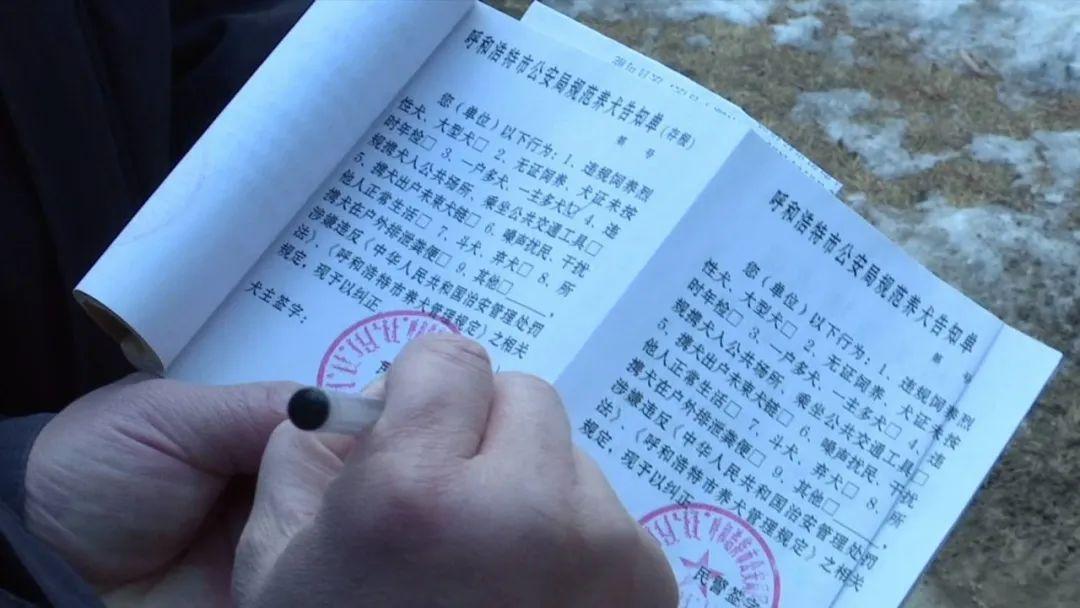 呼和浩特市公安局规范养犬告知单(存根)
第 号
您(单位)以下行为:1、违规饲养烈
性犬、大型犬□ 2、无证饲养、犬证未按
时年检□ 3、一户多犬、一主多犬☑ 4、违
规携犬入公共场所、乘坐公共交通工具□
5、携犬出户未束犬链□ 6、噪声扰民、干扰
他人正常生活□ 7、斗犬、弃犬□ 8、所
携犬在户外排泄粪便□ 9、其他□____,
涉嫌违反《中华人民共和国治安管理处罚
法》、《呼和浩特市养犬管理规定》之相关
规定,现予以纠正
犬主签字:
呼和浩特市公安局规范养犬告知单
第 号
您(单位)以下行为:1、违规饲养烈
性犬、大型犬□ 2、无证饲养、犬证未按
时年检□ 3、一户多犬、一主多犬□ 4、违
规携犬入公共场所、乘坐公共交通工具□
5、携犬出户未束犬链□ 6、噪声扰民、干扰
他人正常生活□ 7、斗犬、弃犬□ 8、所
携犬在户外排泄粪便□ 9、其他□____,
涉嫌违反《中华人民共和国治安管理处罚
法》、《呼和浩特市养犬管理规定》之相关
规定,现予以纠正
民警签字